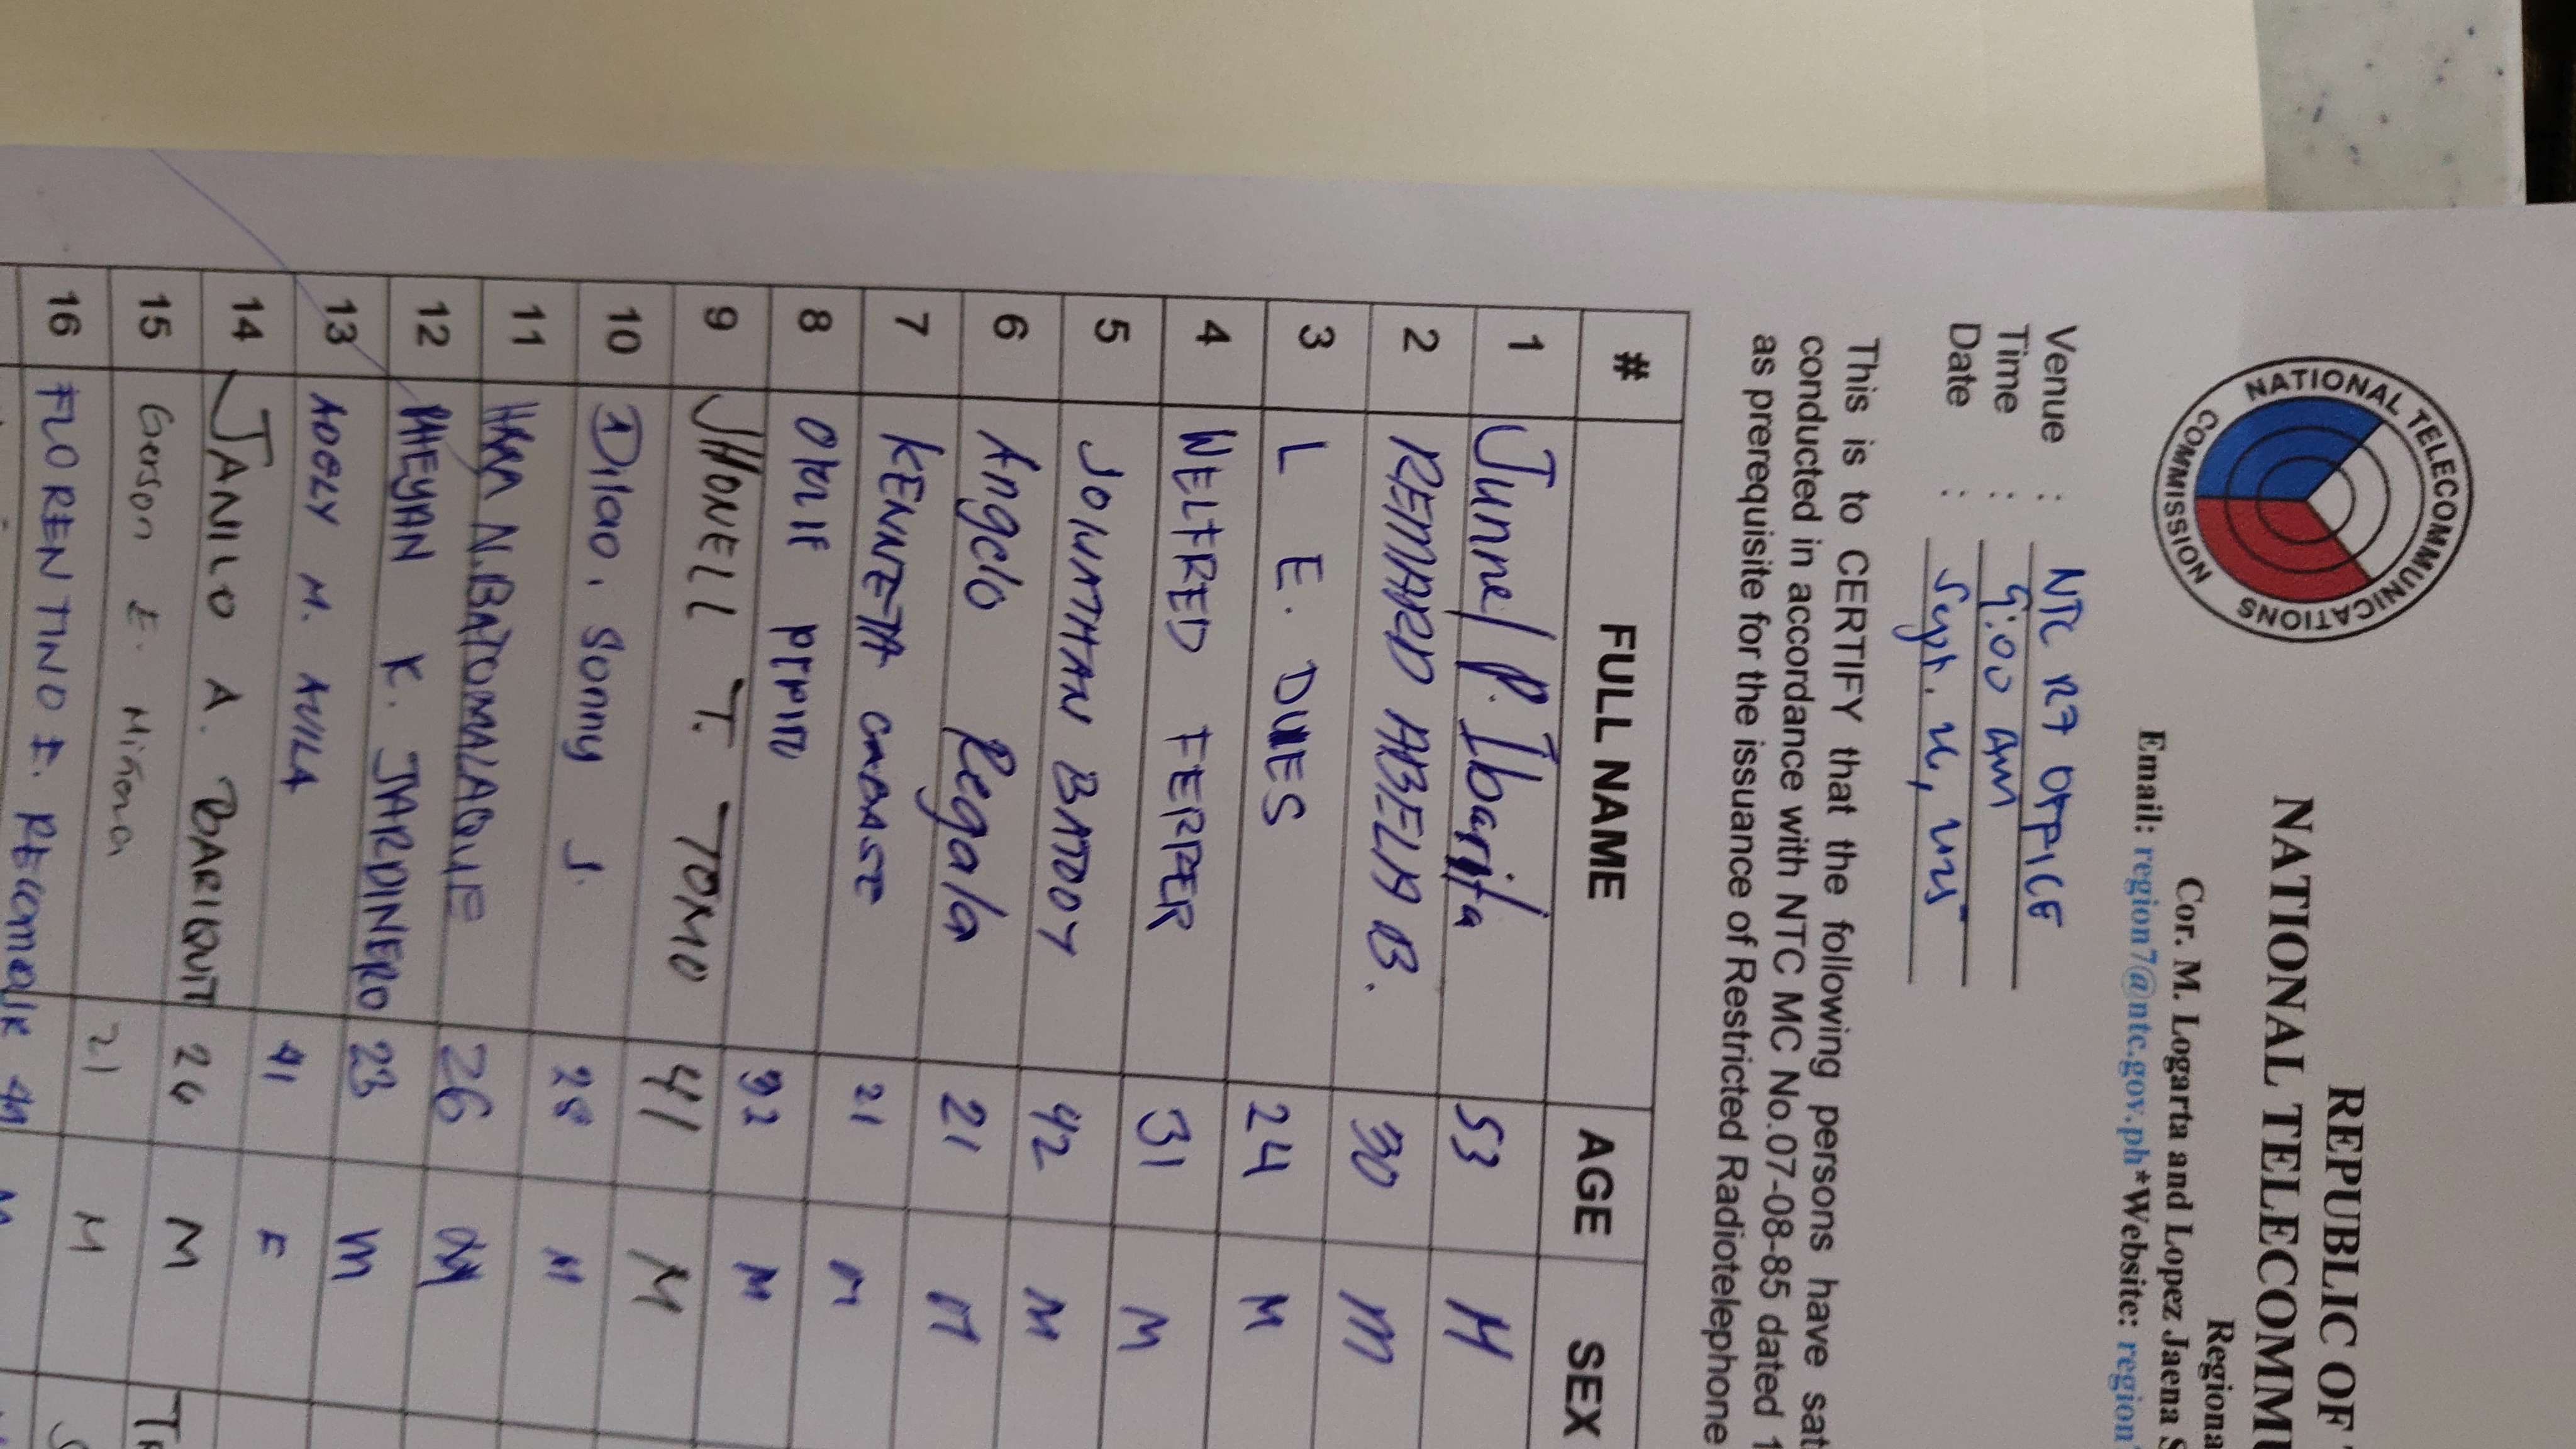 NATIONAL TELECOMMUNICATIONS COMMISSION
REPUBLIC OF
NATIONAL TELECOMMU
Regiona
Cor. M. Logarta and Lopez Jaena S
Email: region7@ntc.gov.ph*Website: region
Venue : NTC R7 OFFICE
Time : 9:00 am
Date : Sept.
This is to CERTIFY that the following persons have sat
conducted in accordance with NTC MC No.07-08-85 dated 1
as prerequisite for the issuance of Restricted Radiotelephone
# FULL NAME AGE SEX
1 Junnel P. Ibarita 53 M
2 REMARD ABELLA B. 30 M
3 L E. DUES 24 M
4 WELFRED FERRER 31 M
5 JOHNATHAN BANTOOY 42 M
6 Angelo Regala 21 M
7 KENNETH 21 M
8 32 M
9 JHONELL T. TOMO 41 M
10 Dilao, Sonny J. 28 M
11 N. BATOMALAQUE 26 M
12 RHEYAN K. JARDINERO 23 M
13 M. AVILA 41 F
14 JANILO A. BARIQUIT 26 M
15 Gerson E. Miñona 21 M
16 FLORENTINO E.